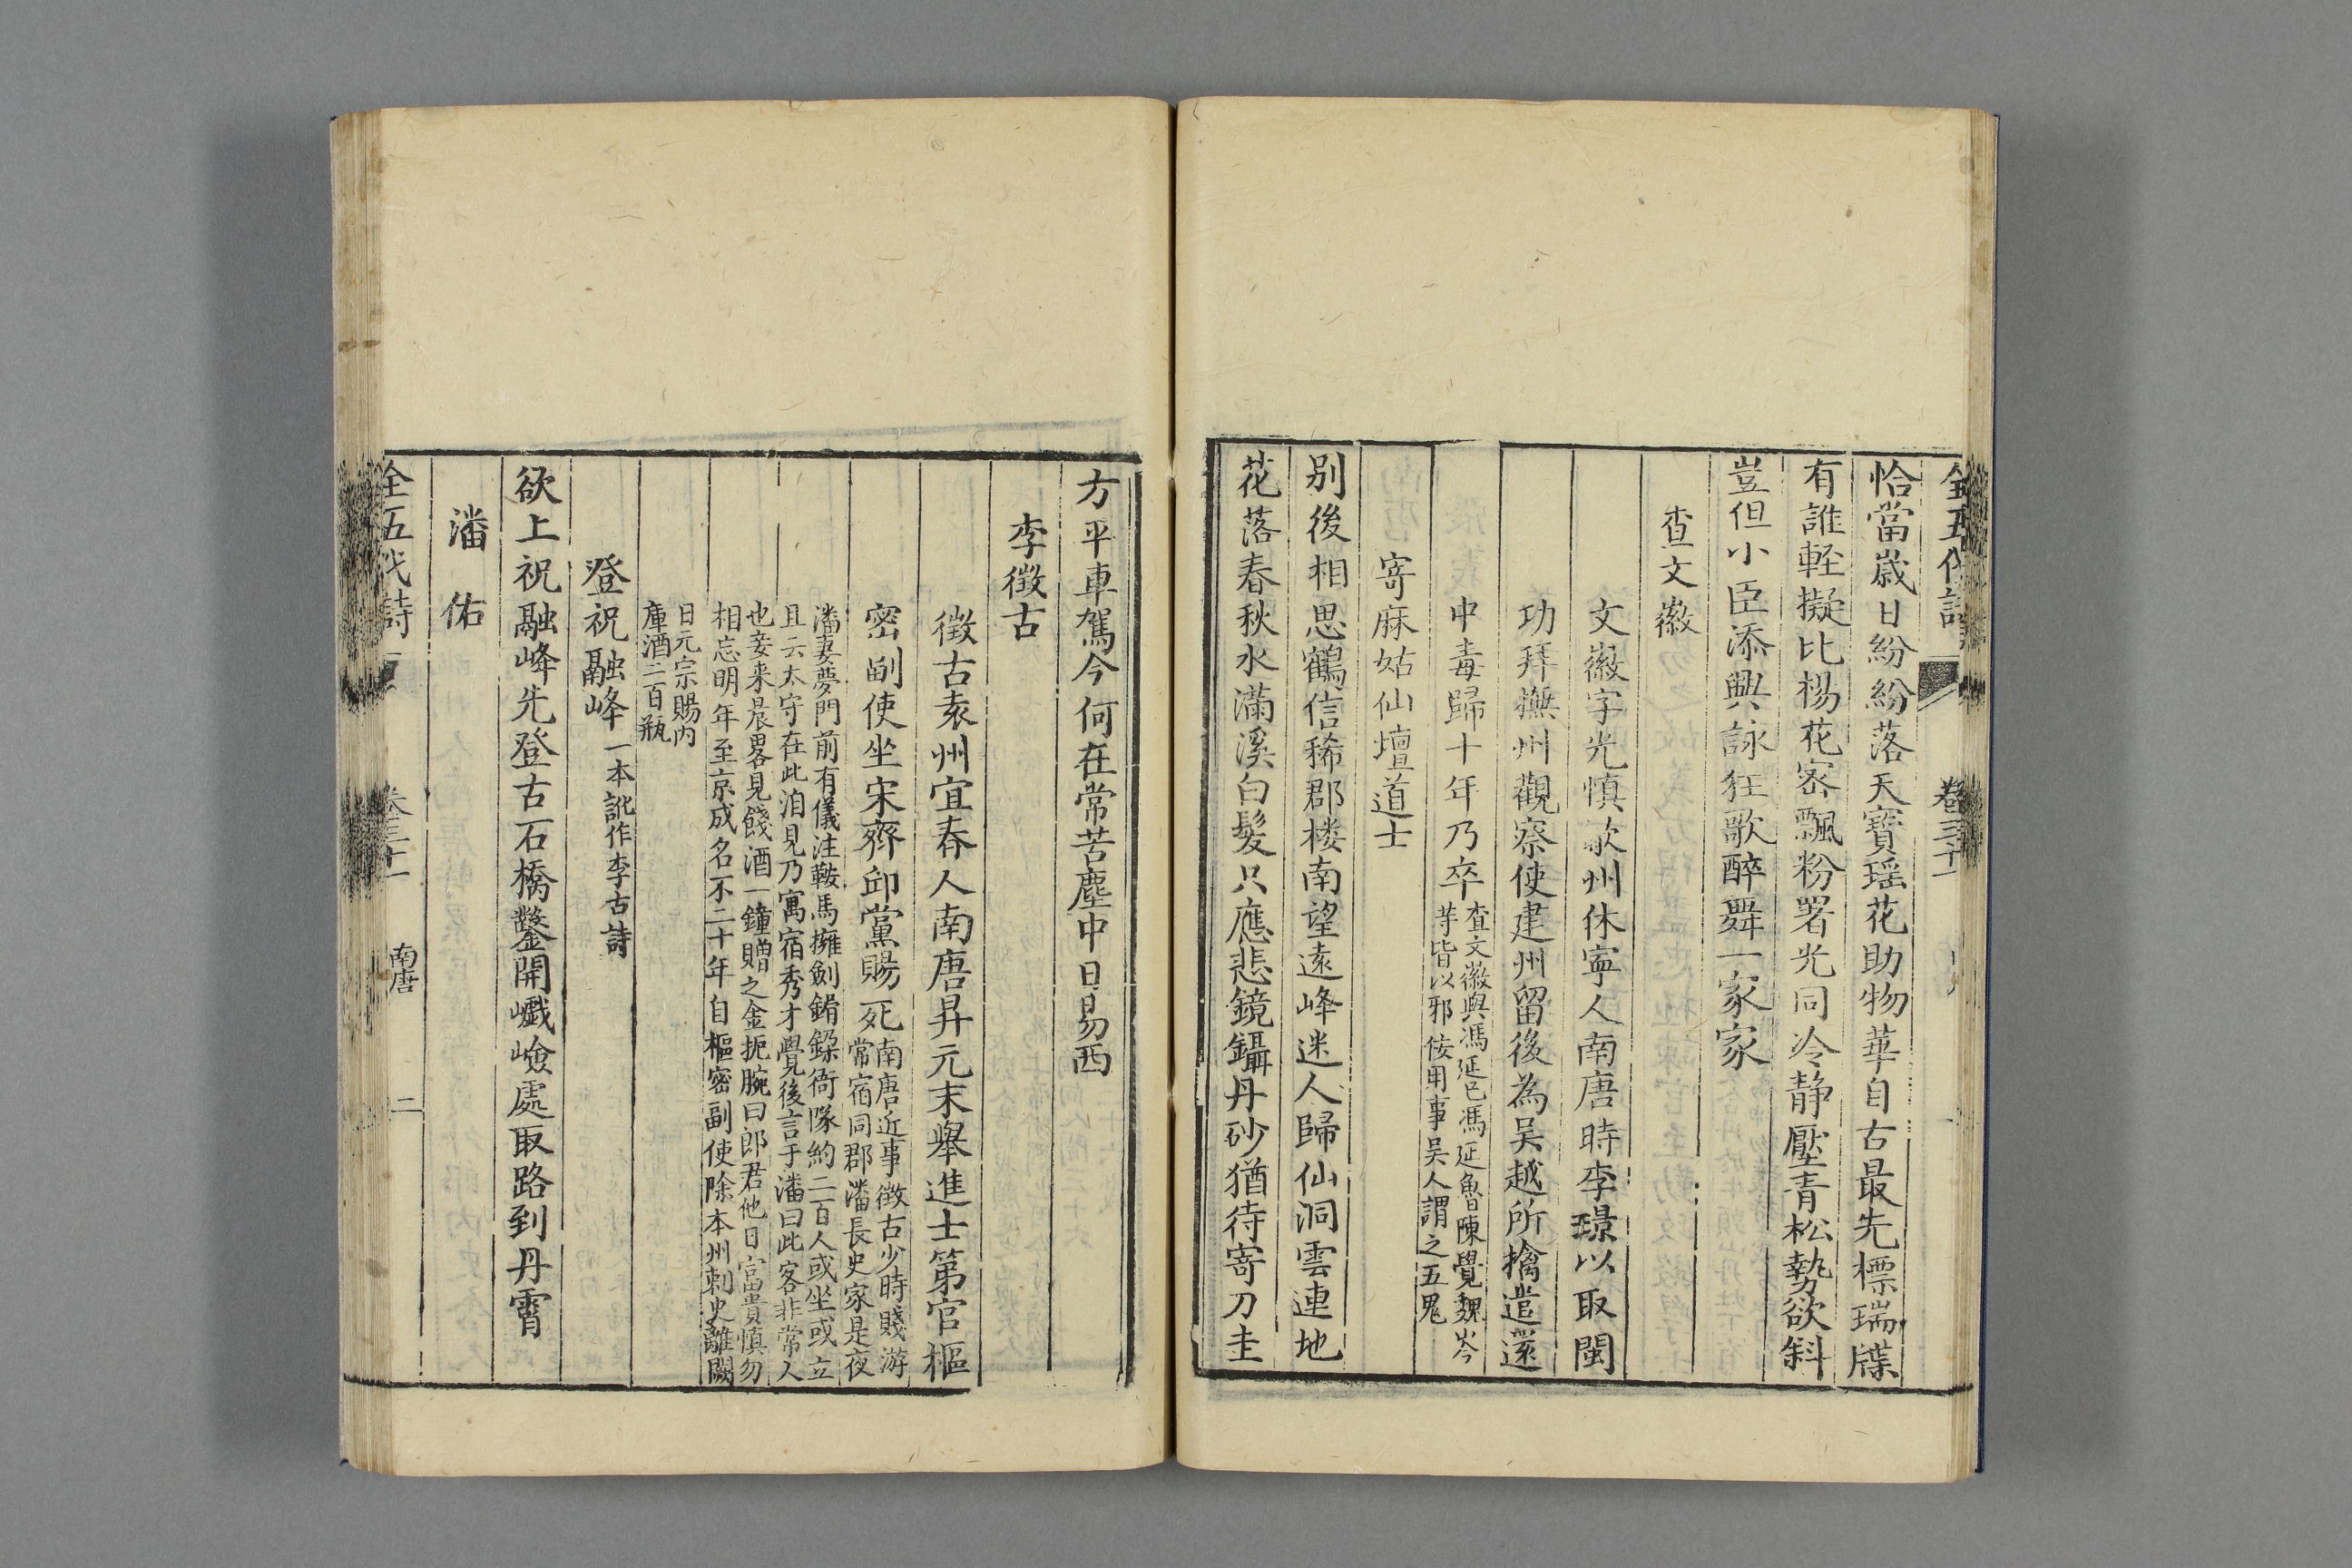 全五代詩 卷三十一
恰當歲日紛紛落天寶瑶花助物華自古最先標瑞牒
有誰輕擬比楊花密飄粉署光同冷靜壓青松勢欲斜
豈但小臣添興詠狂歌醉舞一家家
查文徽
文徽字光慎歙州休寧人南唐時李璟以取閩
功拜撫州觀察使建州留後為吳越所擒遣還
中毒歸十年乃卒
查文徽與馮延巳馮延魯陳覺魏岑
等皆以邪佞用事吳人謂之五鬼
寄麻姑仙壇道士
别後相思鶴信稀郡楼南望遠峰迷人歸仙洞雲連地
花落春秋水滿溪白髮只應悲鏡鑷丹砂猶待寄刀圭
方平車駕今何在常苦塵中日易西
李徵古
徵古袁州宜春人南唐昇元末舉進士第官樞
密副使坐宋齊邱黨賜死
南唐近事徵古少時賤游
常宿同郡潘長史家是夜
潘妻夢門前有儀注鞍馬擁劍鏘鏘衙隊約二百人或坐或立
且云太守在此洎見乃寓宿秀才覺後言于潘曰此客非常人
也妾来晨畧見餞酒一鐘贈之金扼腕曰郎君他日富貴慎勿
相忘明年至京成名不二十年自樞密副使除本州刺史離闕
日元宗賜内
庫酒二百瓶
登祝融峰
一本訛作李古詩
欲上祝融峰先登古石橋鑿開巇嶮處取路到丹霄
潘佑
全五代詩 卷三十一 南唐 二